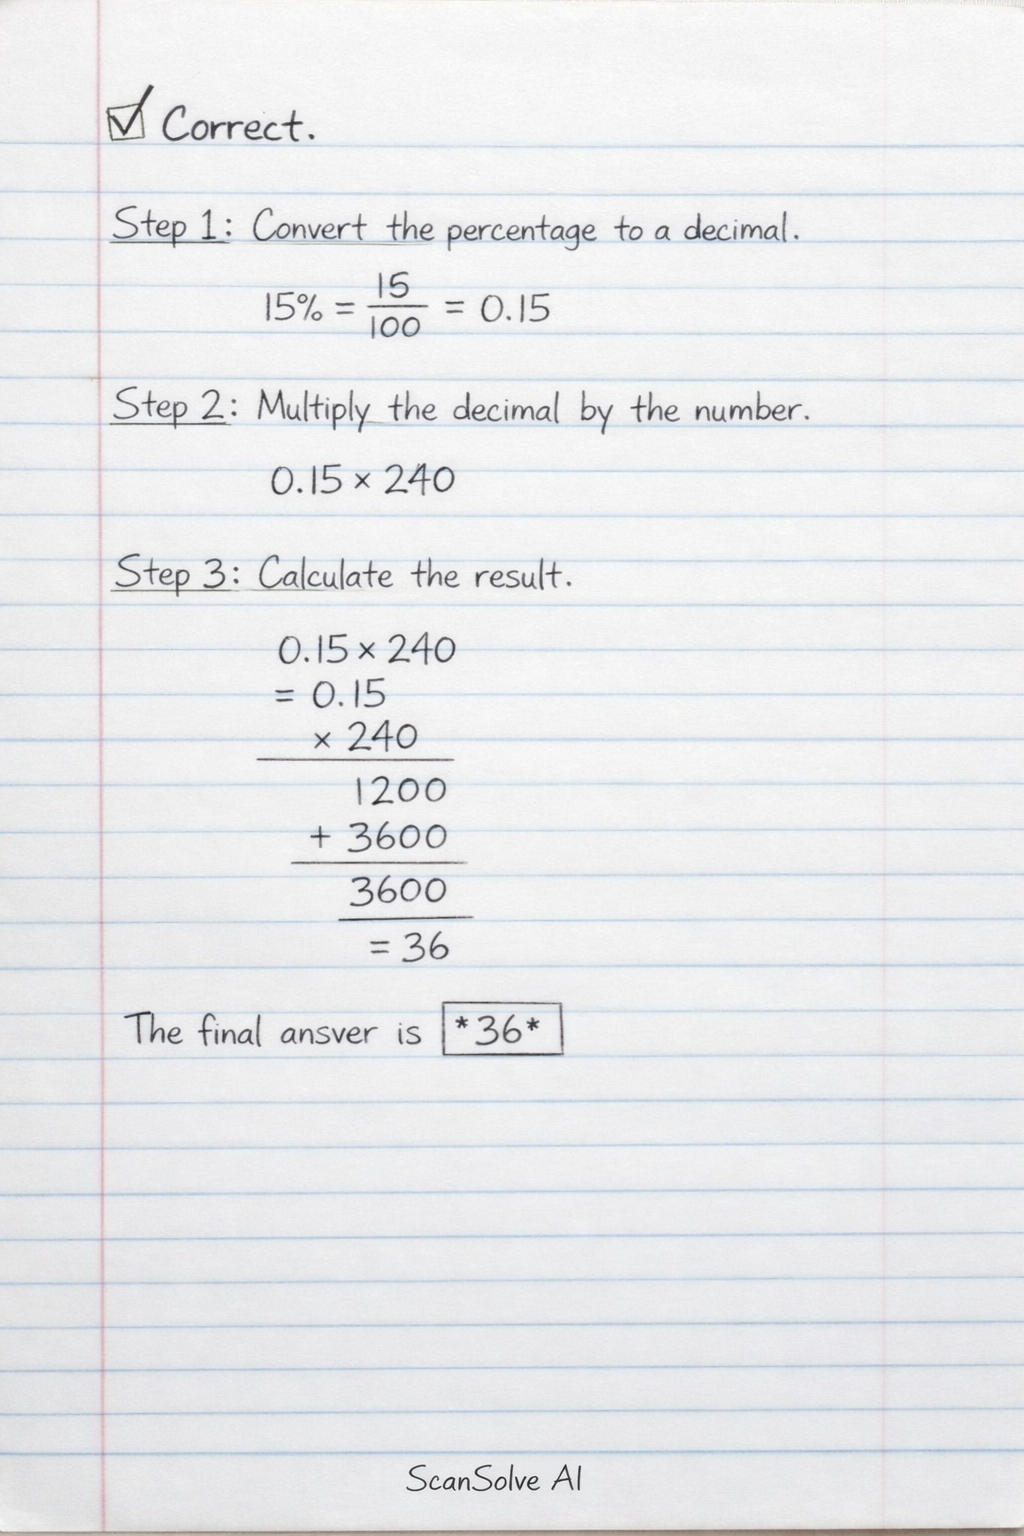 ☑ Correct.
Step 1: Convert the percentage to a decimal.
15% = 15/100 = 0.15
Step 2: Multiply the decimal by the number.
0.15 × 240
Step 3: Calculate the result.
0.15 × 240
= 0.15
× 240
1200
+ 3600
3600
= 36
The final ansver is *36*
ScanSolve AI